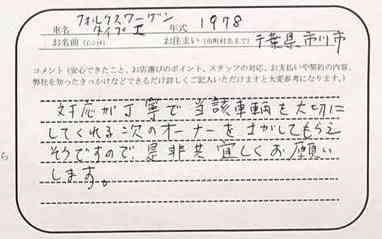 車名 フォルクスワーゲン タイプⅡ 年式 1978
お名前(イニシャル) お住まい(市町村名まで) 千葉県市川市
コメント(安心できたこと、お店選びのポイント、スタッフの対応、お支払いや契約の内容、
弊社を知ったきっかけなどできるだけ詳しくご記入いただけますと大変参考になります。)
対応が丁寧で当該車輌を大切に
してくれる次のオーナーをさがしてもらえ
そうですので、是非共宜しくお願い
します。